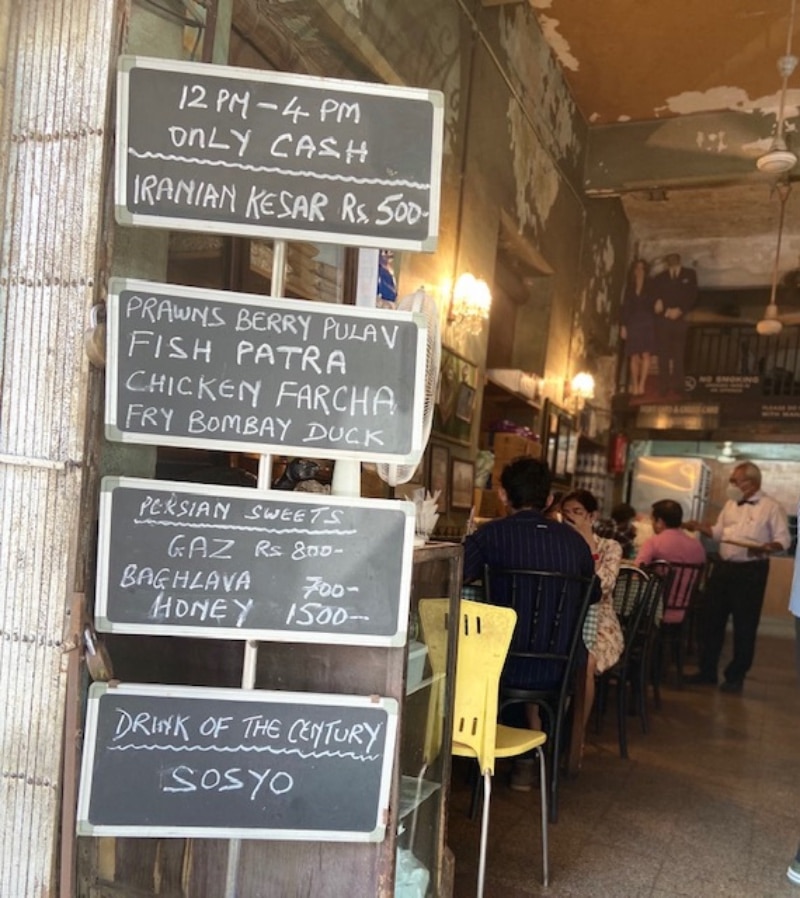 12 PM - 4 PM
ONLY CASH
IRANIAN KESAR Rs. 500-
PRAWNS BERRY PULAV
FISH PATRA
CHICKEN FARCHA
FRY BOMBAY DUCK
PERSIAN SWEETS
GAZ Rs 800-
BAGHLAVA 700-
HONEY 1500-
DRINK OF THE CENTURY
SOSYO
NO SMOKING